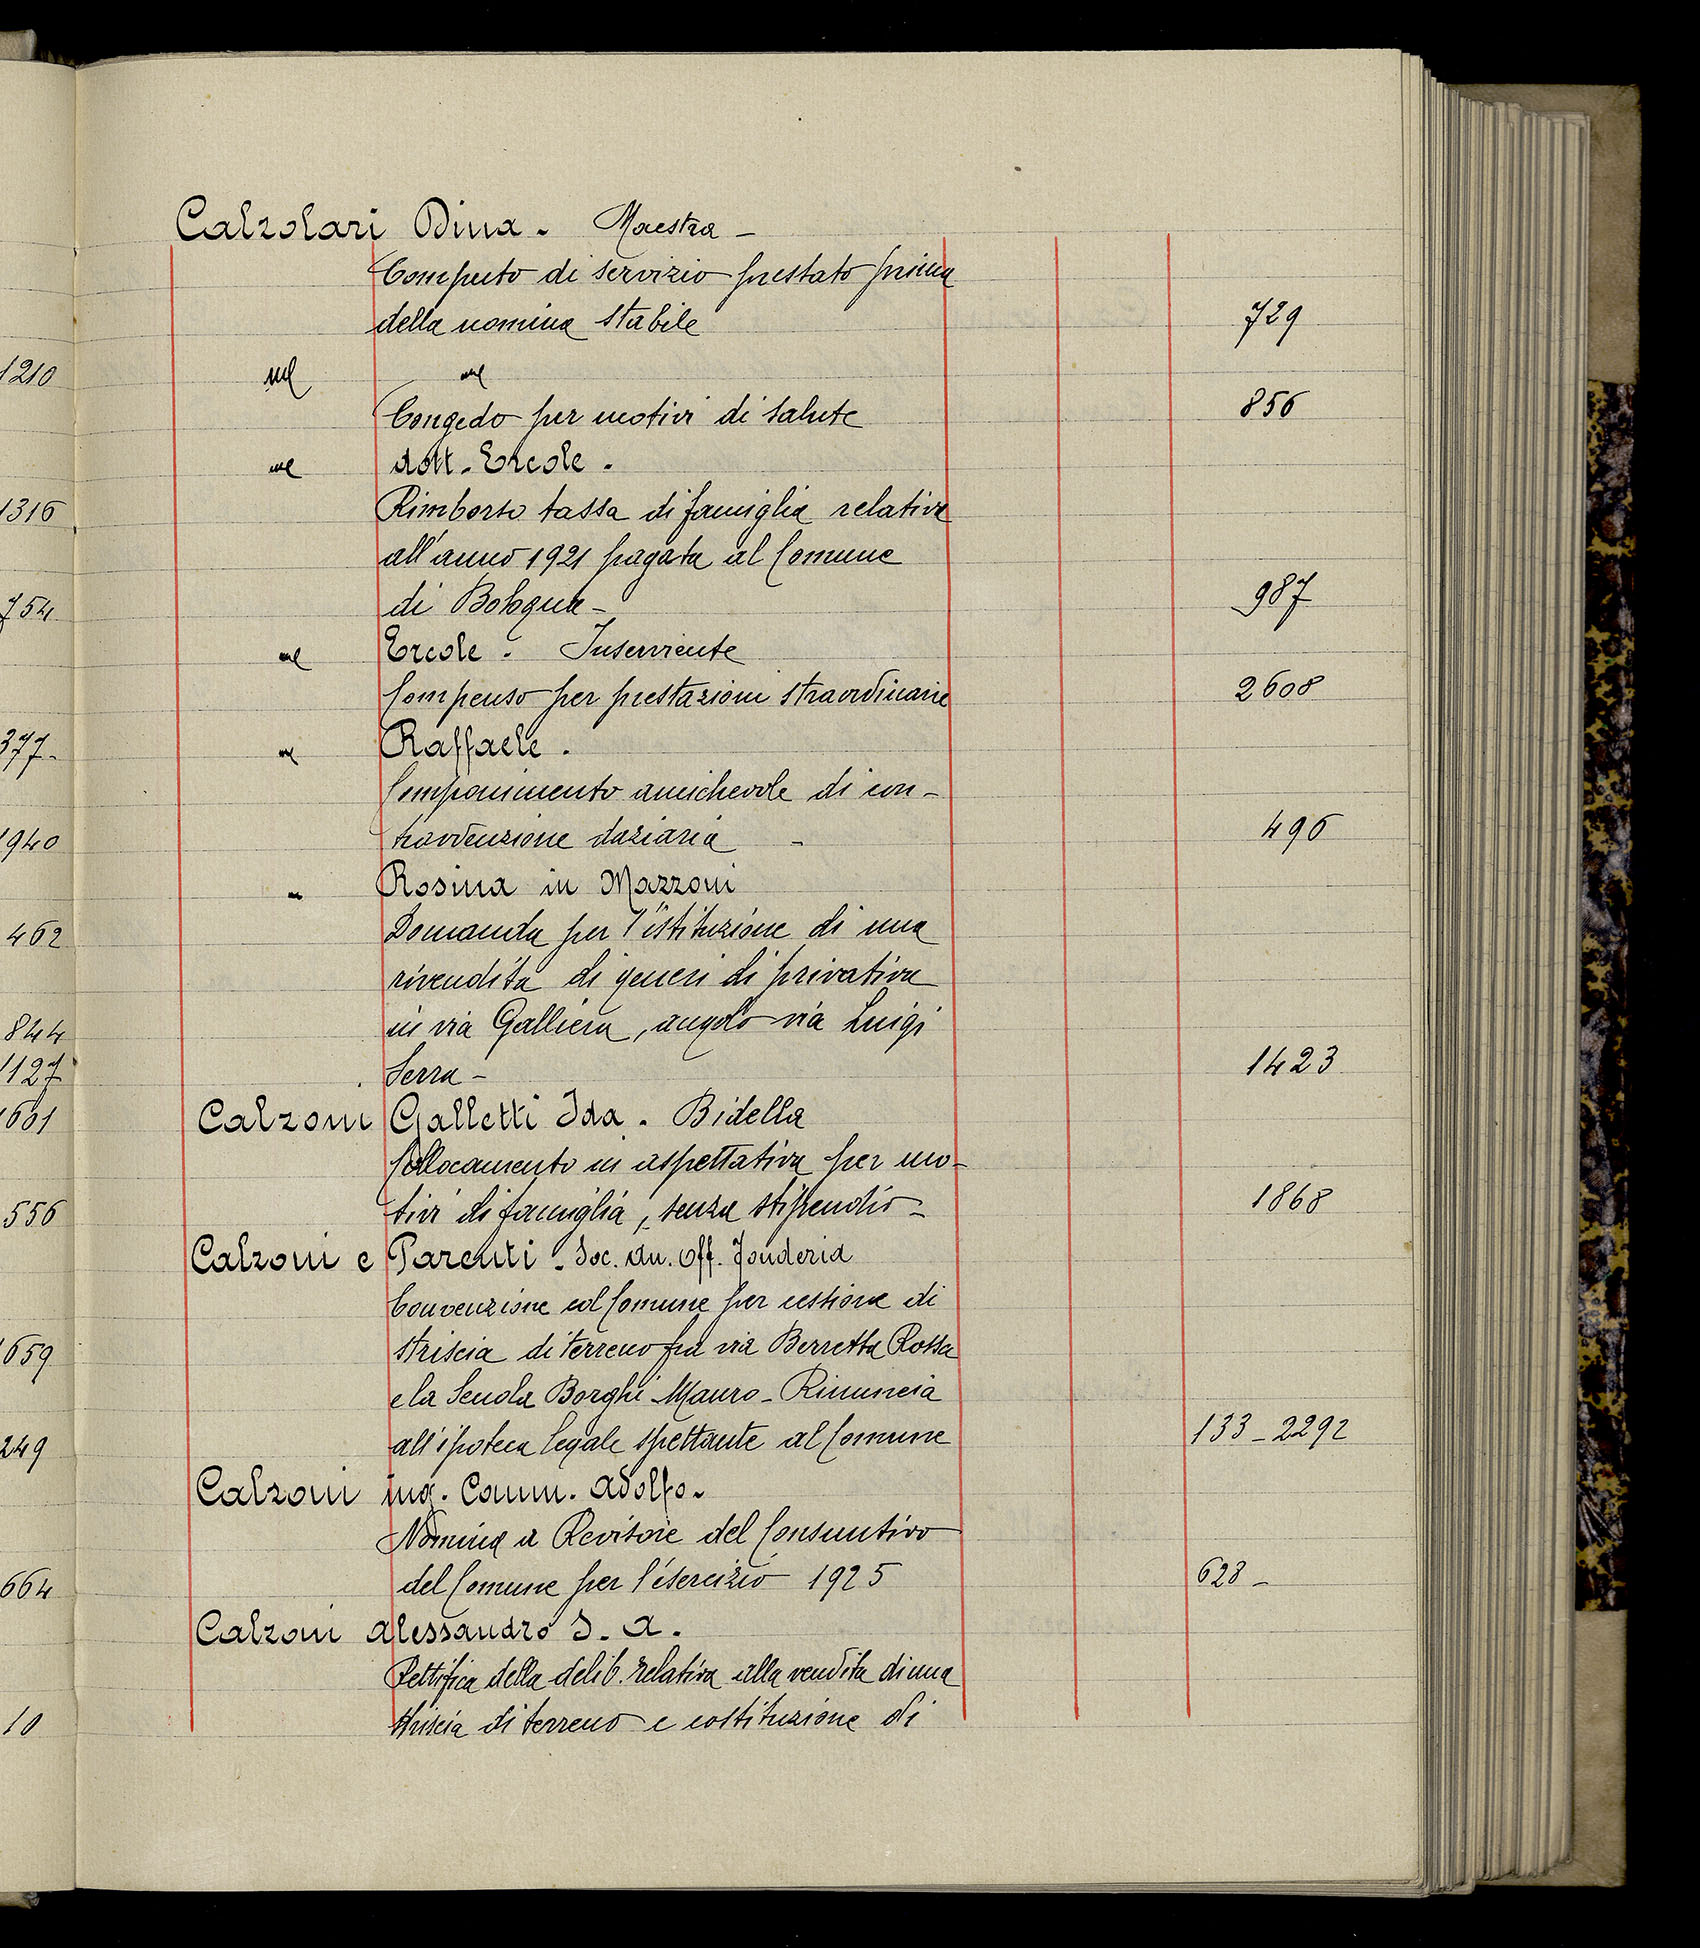 Calzolari Dina. Maestra -
Computo di servizio prestato prima
della nomina stabile 729
Congedo per motivi di salute 856
dott. Ercole.
Rimborso tassa di famiglia relativa
all'anno 1921 pagata al Comune
di Bologna - 987
Ercole. Inserviente
Compenso per prestazioni straordinarie 2608
Raffaele.
Componimento amichevole di con-
travvenzione daziaria - 496
Rosina in Mazzoni
Domanda per l'istituzione di una
rivendita di generi di privativa
in via Galliera, angolo via Luigi
Serra - 1423
Calzoni Galletti Ida. Bidella
Collocamento in aspettativa per mo-
tivi di famiglia, senza stipendio - 1868
Calzoni e Parenti. Soc. An. Off. Fonderia
Convenzione col Comune per cessione di
striscia di terreno fra via Berretta Rossa
e la Scuola Borghi Mauro - Rinuncia
all'ipoteca legale spettante al Comune 133 - 2292
Calzoni ing. Comm. Adolfo.
Nomina a Revisore del Consuntivo
del Comune per l'esercizio 1925 628 -
Calzoni Alessandro S. A.
Rettifica della delib. relativa alla vendita di una
striscia di terreno e costituzione di
1210
1316
754
377-
1940
462
844
1127
1601
556
1659
249
664
10